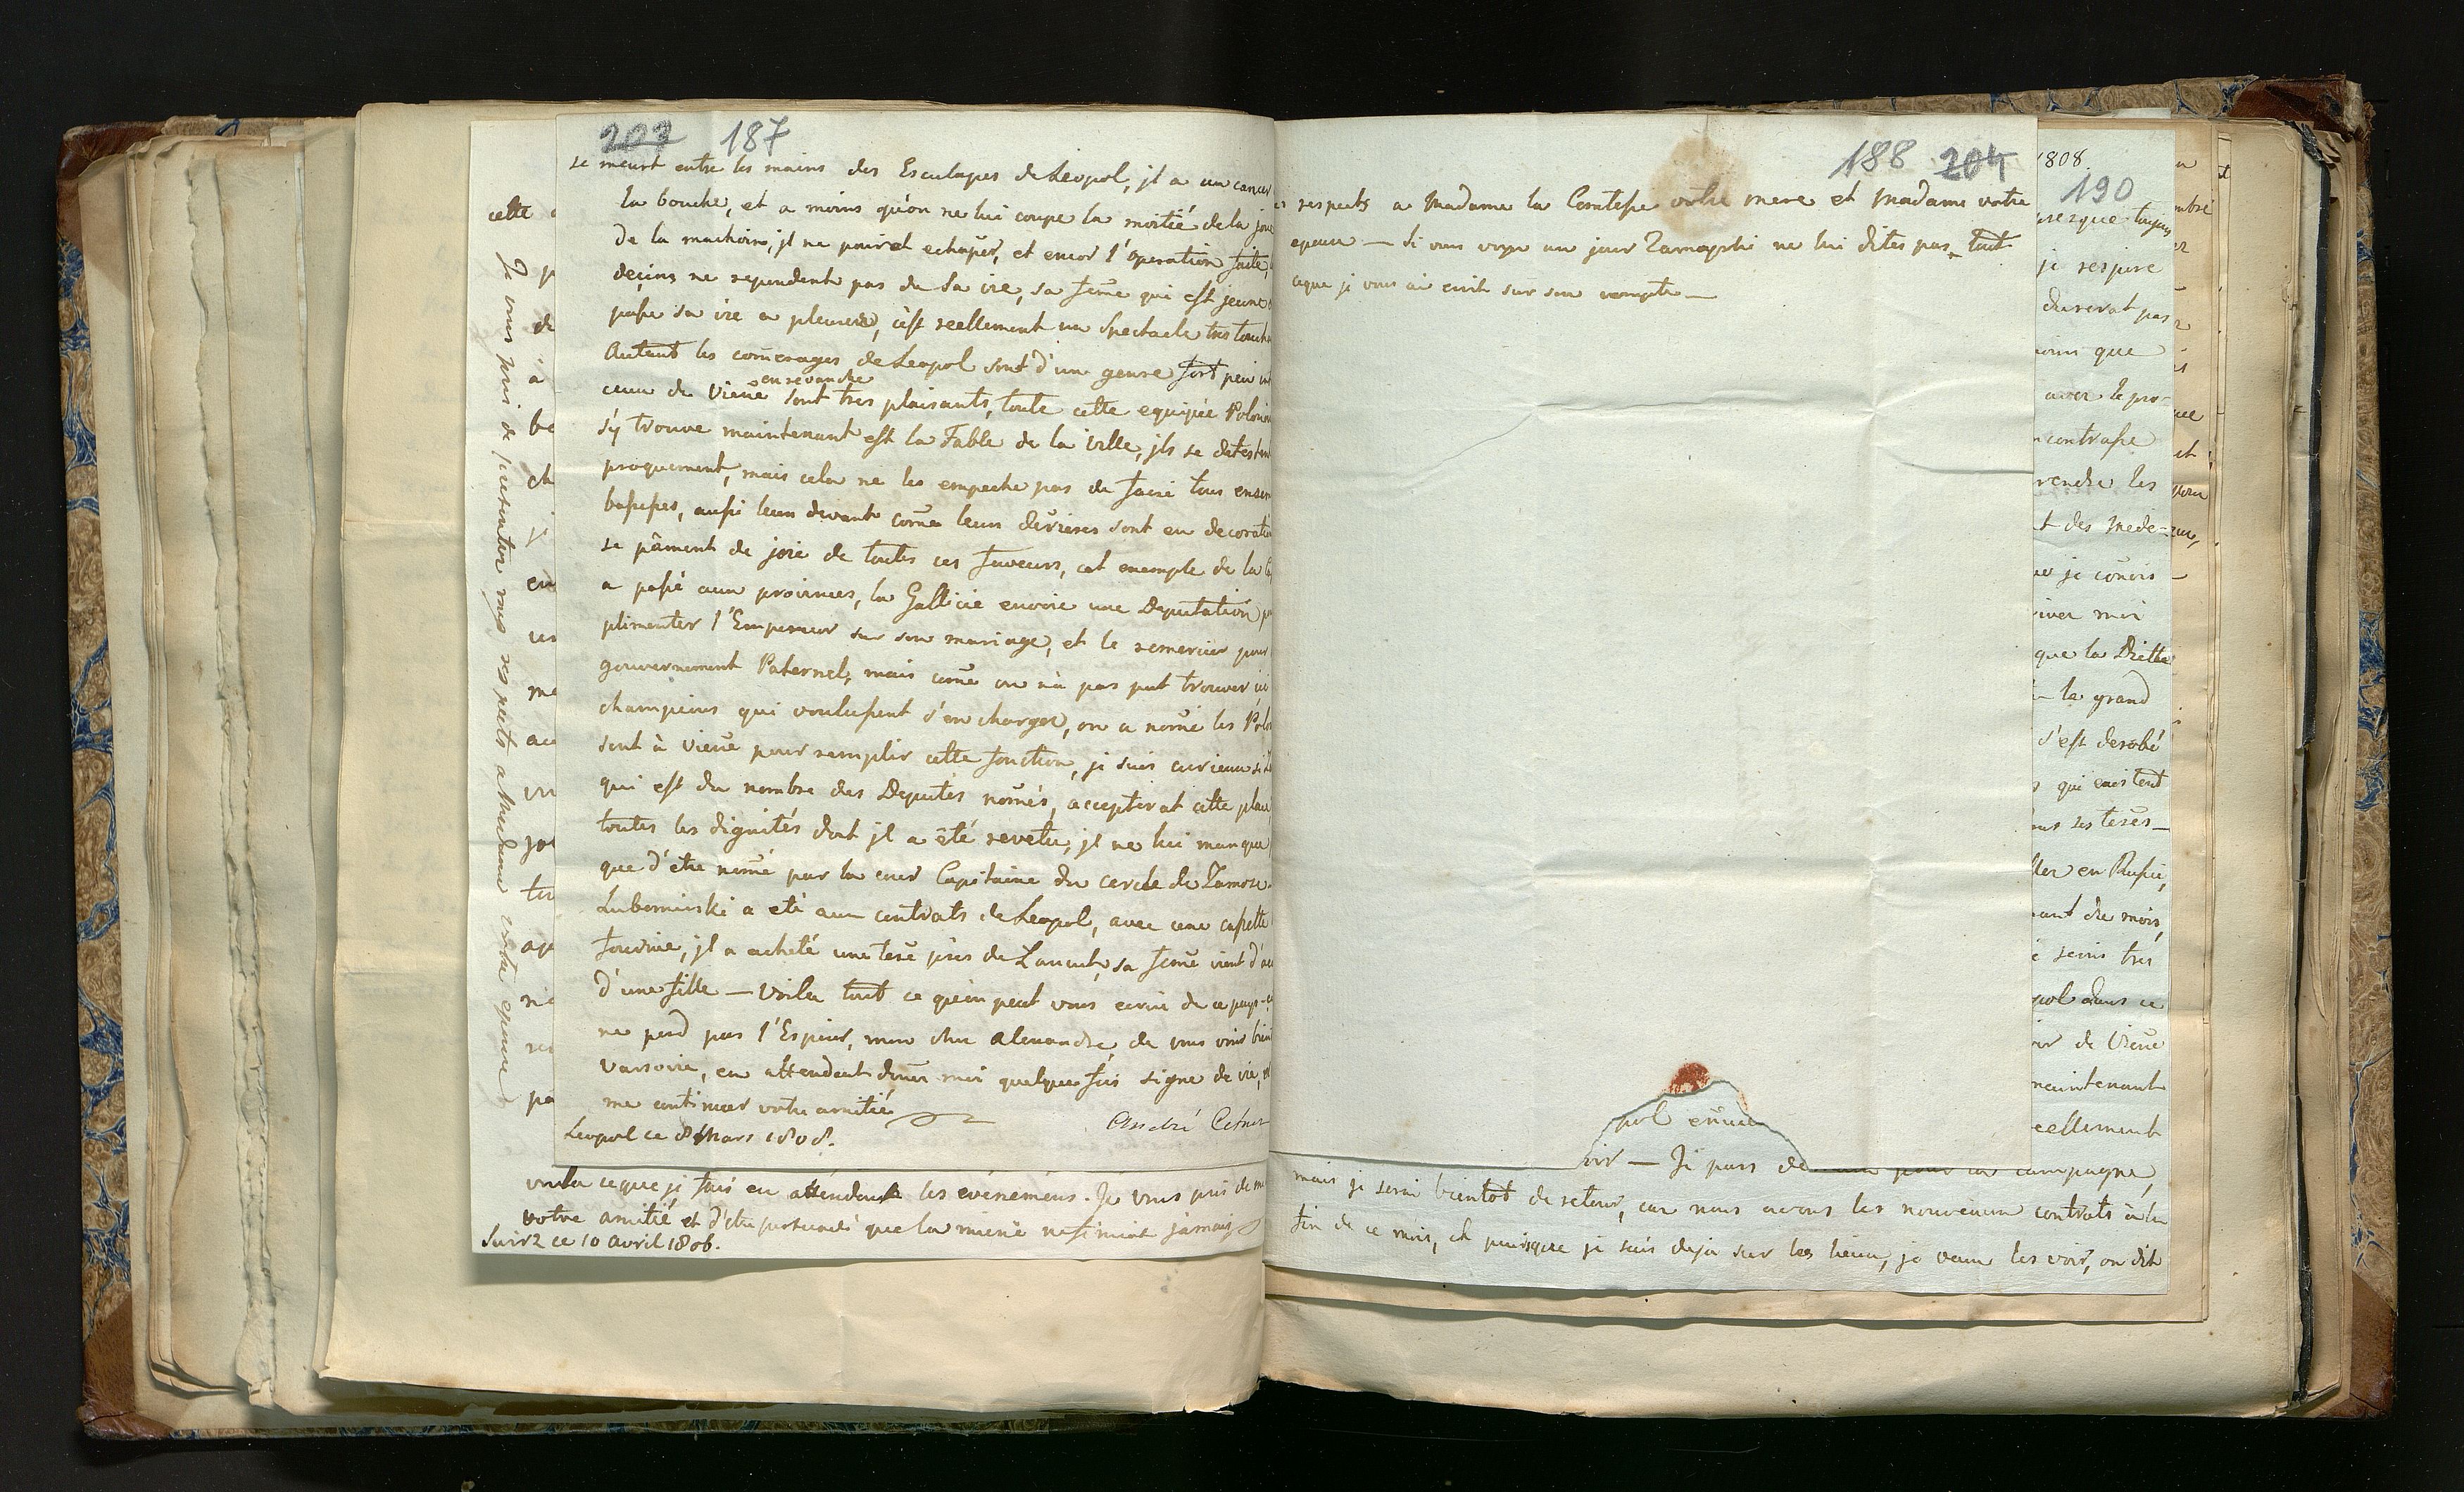 203 187
se meurt entre les mains des Esculapes de Léopol, jl a un cancer
la bouche, et a moins qu'on ne lui coupe la moitié de la joue
de la machoire, jl ne pourat echaper, et encor l'operation faite,
deçins ne repondent pas de sa vie, sa feme qui est jeune
passe sa vie a pleurer, c'est reellement un Spectacle tres touch
Autant les comerages de Léopol sont d'un genre fort peu int
en revanche
ceux de Viene sont tres plaisants, toute cette equipée Polon
s'y trouve maintenant est la Fable de la Ville, jls se detestent
proquement, mais cela ne les empeche pas de faire tous ensem
bassesses, aussi leurs devant come leurs derieres sont en decorati
se pâment de joie de toutes ces faveurs, cet exemple de la
a passé aux provinces, la Gallicie envoie une Deputation p
plimenter l'Empereur sur son mariage, et le remercier pour
gouvernement Paternel, mais come on n'a pas put trouver ici
champions qui voulussent s'en charger, on a nomé les Polo
sont à Viene pour remplir cette fonction, je suis curieux si
qui est du nombre des Deputés només, accepterat cette place
toutes les dignités dont jl a êté revetu, jl ne lui manque
que d'être nomé par la cour Capitaine du cercle de Zamos
Lubomirski a eté aux contrats de Léopol, avec une cassette
fournie, jl a acheté une tere près de Lancut, sa feme vient d'ac
d'une fille — Voila tout ce qu'on peut vous ecrire de ce pays-
ne perd pas l'Espoir, mon cher Alexandre, de vous voir bien
Varsovie, en attendent donez moi quelque fois signe de vie, et
me continuer votre amitié
André Cetner
Léopol ce 8 Mars 1808.
cette
p
de
a
be
ch
je
en
un
me
au
vu
jou
tr
ap
ni
re
pa
Je vous prie de presenter mes respects a Madame votre epouse
voila ceque je fais en attendent les evénemens. Je vous prie de me
votre amitié et d'être persuadé que la miene ne finirat jamais
Swirz ce 10 Avril 1806.
188 204
respects a Madame la Comtesse votre mere et Madame votre
epouse — Si vous voyez un jour Zamoyski ne lui dites pas tout
ceque je vous ai ecrit sur son compte —
1808.
190
presque toujours
je respire
durerat pas
moins que
avec le pro-
contrasse
rendre les
t des Mede-
je conois
iver moi
que la Diette
la grand
s'est derobé
qui existent
ses teres —
ller en Russie,
ant dix mois,
serai tres
pol dans ce
de Viene
maintenant
reellement
pol
voir — Je pars pour la campagne,
mais je serai bientot de retour, car nous avons les nouveaux contrats à la
fin de ce mois, et puisque je suis deja sur les lieux, je veux les voir, on dit